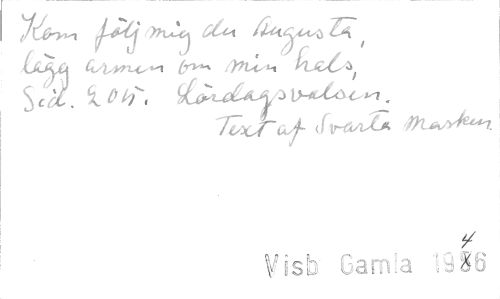 Kom följ mig du Augusta,
lägg armen om min hals,
Sid. 205. Lördagsvalsen.
Text af Svarta Masken.
4
Visb Gamla 1986